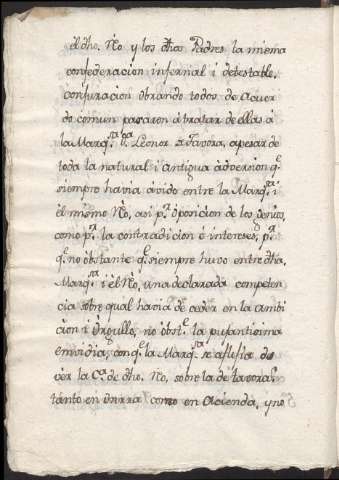 el dho. Rèo y los dhos Padres la misma
confederacion infernal i detestable
conjuracion obrando todos de Acuer
do comun pasaron à tratar de ellas à
la Marq.ˢᵃ D.ᵃ Leonor de Tavora, apesar de
toda la natural i antigua adversion q.ᵉ
siempre havia avido entre la Marq.ˢᵃ i
èl mismo Rèo, asi p.ʳ òposicion de los genios,
como p.ʳ la contradicion è intereses, p.ʳ
q.ᵉ no obstante q.ᵉ siempre huvo entre dha.
Marq.ˢᵃ i èl Rèo, una declarada competen
cia sobre qual havia de ceder en la ambi
cion i òrgullo, no obst.ᵉ la pujantisima
embidia, con q.ᵉ la Marq.ˢᵃ se aflijia de
vèr la C.ᵃ de dho. Rèo, sobre la de Tavora,
tànto en onrra como en Acienda, y no